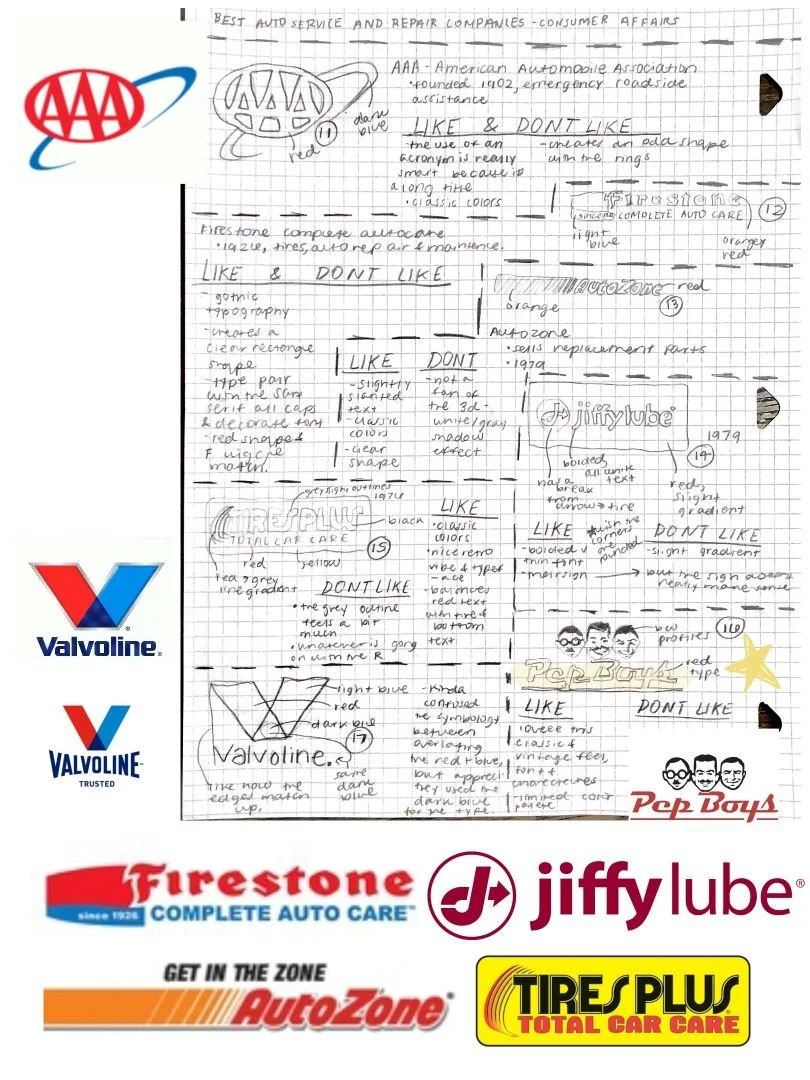 BEST AUTO SERVICE AND REPAIR COMPANIES - CONSUMER AFFAIRS
AAA
AAA - American Automobile Association
• founded 1902, emergency roadside
assistance
11
dark
blue
red
LIKE & DONT LIKE
- the use of an
acronym is really
smart because is
a long title
• classic colors
- creates an odd shape
with the rings
Firestone
since 1926 COMPLETE AUTO CARE
12
light
blue
orangey
red
Firestone complete autocare
• 1926, tires, auto repair & maintence.
LIKE & DONT LIKE
- gothic
typography
- creates a
clear rectangle
shape
- type pair
with the sans
serif all caps
& decorate font
- red shape &
F
match.
AutoZone
red
orange
13
Autozone
• sells replacement parts
• 1979
LIKE
- slightly
slanted
text
- classic
colors
- clear
shape
DONT
- not a
fan of
the 3d-
white/gray
shadow
effect
jiffylube
1979
14
bolded,
all white
text
not a
break
from
arrow → tire
red,
slight
gradient
LIKE
- bolded v
thin font
- main sign
wish the
corners
are
rounded
DONT LIKE
- slight gradient
→ but the sign doesnt
really make sense
grey slight outlines
1976
TIRES PLUS
TOTAL CAR CARE
black
15
red
yellow
red → grey
line gradient
LIKE
• classic
colors
• nice retro
vibe & type
- balances
red text
with red
bottom
text
DONT LIKE
• the grey outline
feels a bit
much
• whatever is going
on with the R
b&w
profiles
16
Pep Boys
red
type
LIKE
loveee this
classic &
vintage feel,
font &
characatures
- limited color
palette
DONT LIKE
Valvoline.
light blue
red
dark blue
17
same
dark
blue
like how the
edges match
up.
- Kinda
confused
the symbology
between
overlating
the red + blue,
but appreci.
they used the
dark blue
for the type.
Valvoline®
VALVOLINE™
TRUSTED
Pep Boys
Firestone
since 1926 COMPLETE AUTO CARE™
jiffy lube®
GET IN THE ZONE
AutoZone®
TIRES PLUS
TOTAL CAR CARE®